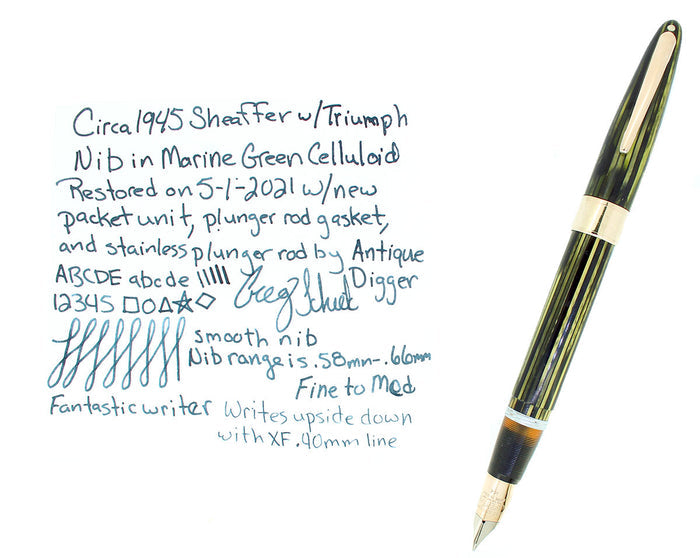 Circa 1945 Sheaffer w/Triumph
Nib in Marine Green Celluloid
Restored on 5-1-2021 w/new
packet unit, plunger rod gasket,
and stainless plunger rod by Antique
Digger
ABCDE abcde
12345
smooth nib
Nib range is .58mm-.66mm
Fine to Med
Fantastic writer
Writes upside down
with XF .40mm line